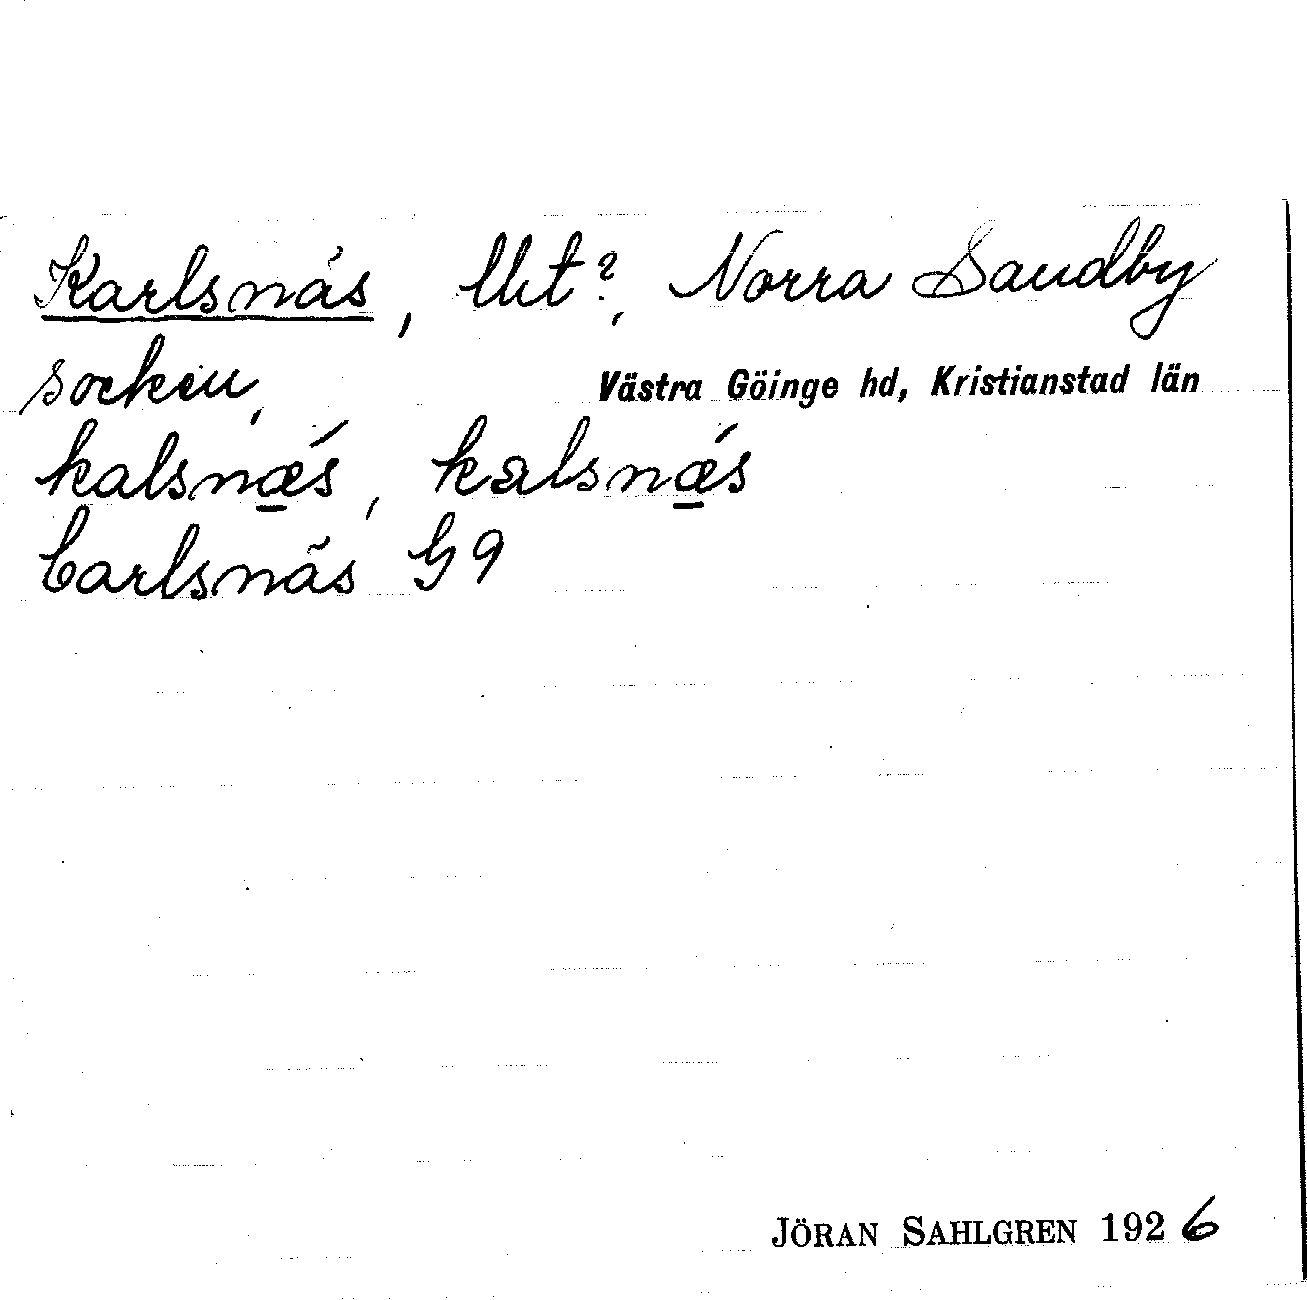 Karlsnäs, lht?, Norra Sandby
socken, Västra Göinge hd, Kristianstad län
kalsnǽ̲s, kalsnǽ̲s
Carlsnäs G9
JÖRAN SAHLGREN 1926